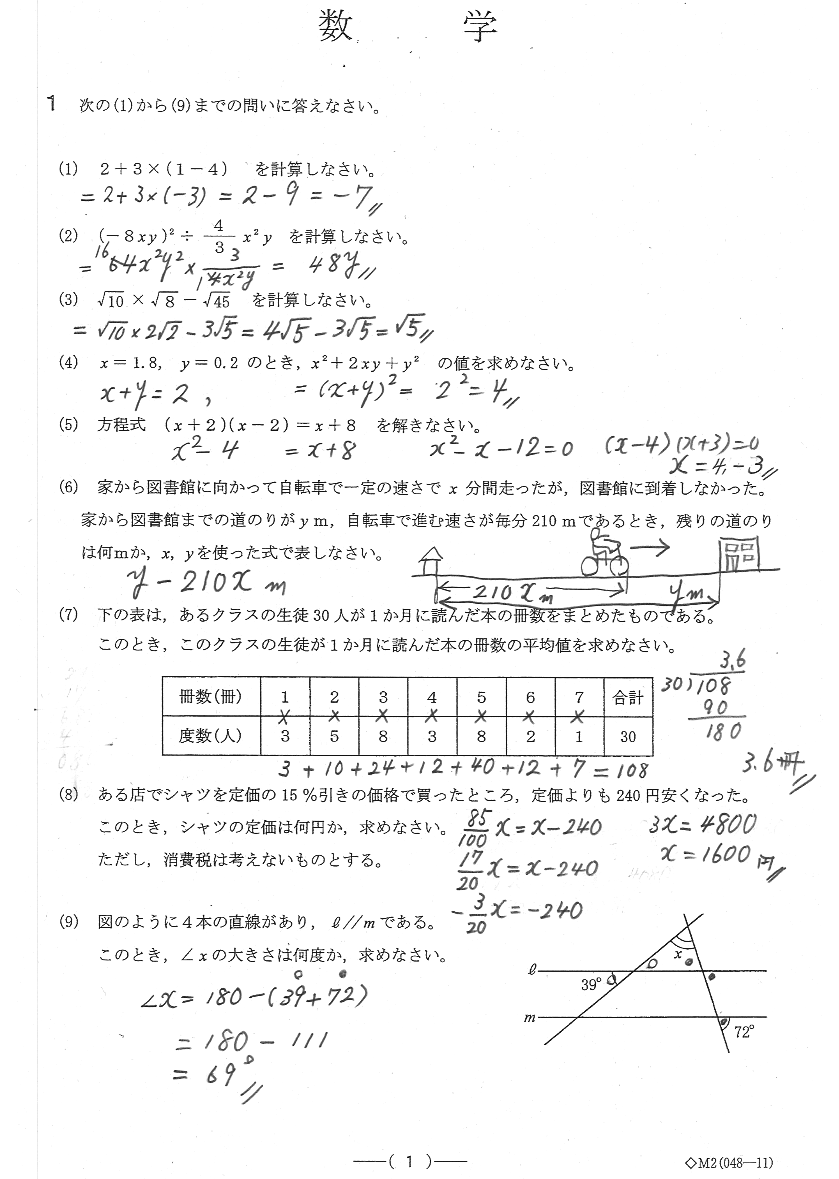 数　学
1　次の(1)から(9)までの問いに答えなさい。
(1)　2＋3×(1－4)　を計算しなさい。
= 2+3×(-3) = 2-9 = -7
(2)　(－8xy)²÷ 4/3 x²y　を計算しなさい。
= 16 64x²y² × 3/(1 4x²y) = 48y
(3)　√10×√8－√45　を計算しなさい。
= √10×2√2-3√5 = 4√5-3√5 = √5
(4)　x＝1.8, y＝0.2 のとき, x²＋2xy＋y² の値を求めなさい。
x+y=2, = (x+y)² = 2² = 4
(5)　方程式　(x＋2)(x－2)＝x＋8　を解きなさい。
x²-4 = x+8　x²-x-12=0　(x-4)(x+3)=0
x=4,-3
(6)　家から図書館に向かって自転車で一定の速さで x 分間走ったが, 図書館に到着しなかった。
家から図書館までの道のりが y m, 自転車で進む速さが毎分210 mであるとき, 残りの道のり
は何mか, x, yを使った式で表しなさい。
y-210x m
210x m　ym
(7)　下の表は, あるクラスの生徒30人が1か月に読んだ本の冊数をまとめたものである。
このとき, このクラスの生徒が1か月に読んだ本の冊数の平均値を求めなさい。
冊数(冊) 1 2 3 4 5 6 7 合計
× × × × × × ×
度数(人) 3 5 8 3 8 2 1 30
3+10+24+12+40+12+7=108
3.6
30)108
90
180
3.6冊
(8)　ある店でシャツを定価の15％引きの価格で買ったところ, 定価よりも240円安くなった。
このとき, シャツの定価は何円か, 求めなさい。
ただし, 消費税は考えないものとする。
85/100 x = x-240　3x=4800
17/20 x = x-240　x=1600円
-3/20 x = -240
(9)　図のように4本の直線があり, ℓ//mである。
このとき, ∠xの大きさは何度か, 求めなさい。
∠x = 180-(39+72)
= 180-111
= 69°
x
ℓ
39°
m
72°
(1)
◇M2(048―11)